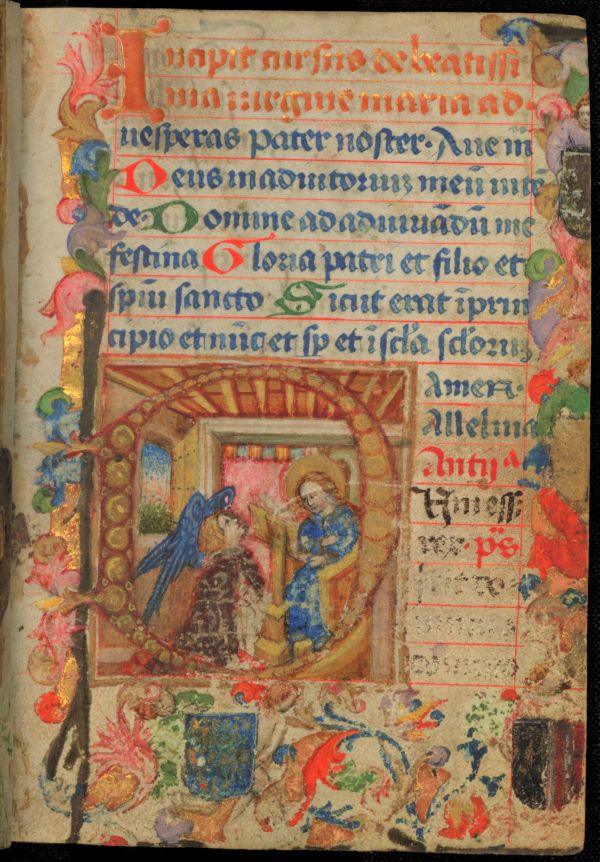 Incipit cursus de beatissi
ma uirgine maria ad
uesperas pater noster. Aue m̄
Deus in adiutorium meū inte
de. Domine ad adiuuādū me
festina Gloria patri et filio et
spūi sancto Sicut erat ī prin
cipio et nūc et sp et ī scl̄a scl̄orum
Amen.
Alleluia
Antiᵃ
ps